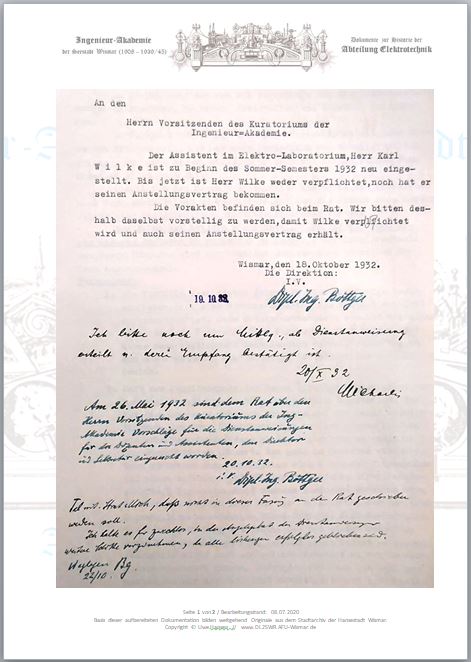 Ingenieur-Akademie
der Seestadt Wismar (1908 – 1939/45)
Dokumente zur Historie der
Abteilung Elektrotechnik
An den
Herrn Vorsitzenden des Kuratoriums der
Ingenieur=Akademie.
Der Assistent im Elektro-Laboratorium,Herr Karl
W i l k e ist zu Beginn des Sommer-Semesters 1932 neu einge-
stellt. Bis jetzt ist Herr Wilke weder verpflichtet,noch hat er
seinen Anstellungsvertrag bekommen.
Die Vorakten befinden sich beim Rat. Wir bitten des-
halb daselbst vorstellig zu werden,damit Wilke verpflichtet
wird und auch seinen Anstellungsvertrag erhält.
Wismar,den 18.Oktober 1932.
Die Direktion:
I.V.
Dipl.-Ing. Röttger
19.10.32.
Ich bitte noch um , als Dienstanweisung
erteilt u. deren Empfang bestätigt ist.
20/X 32
Michaelis
Am 26. Mai 1932 sind dem Rat über den
Herrn Vorsitzenden des Kuratoriums der Ing-
Akademie Vorschläge für die Dienstanweisungen
für den Dozenten und Assistenten, den Direktor
und Sekretär eingereicht worden.
20.10.32.
i.V. Dipl.-Ing. Röttger
daß in dieser Fassung an den Rat geschrieben
werden soll.
Ich halte es für zwecklos, in der Angelegenheit der Dienstanweisungen
weitere Schritte vorzunehmen, da alle bisherigen erfolglos geblieben sind.
22/10.
Seite 1 von 2 / Bearbeitungsstand: 08.07.2020
Basis dieser aufbereiteten Dokumentation bilden weitgehend Originale aus dem Stadtarchiv der Hansestadt Wismar
Copyright © Uwe // www.DL2SWR.AFU-Wismar.de